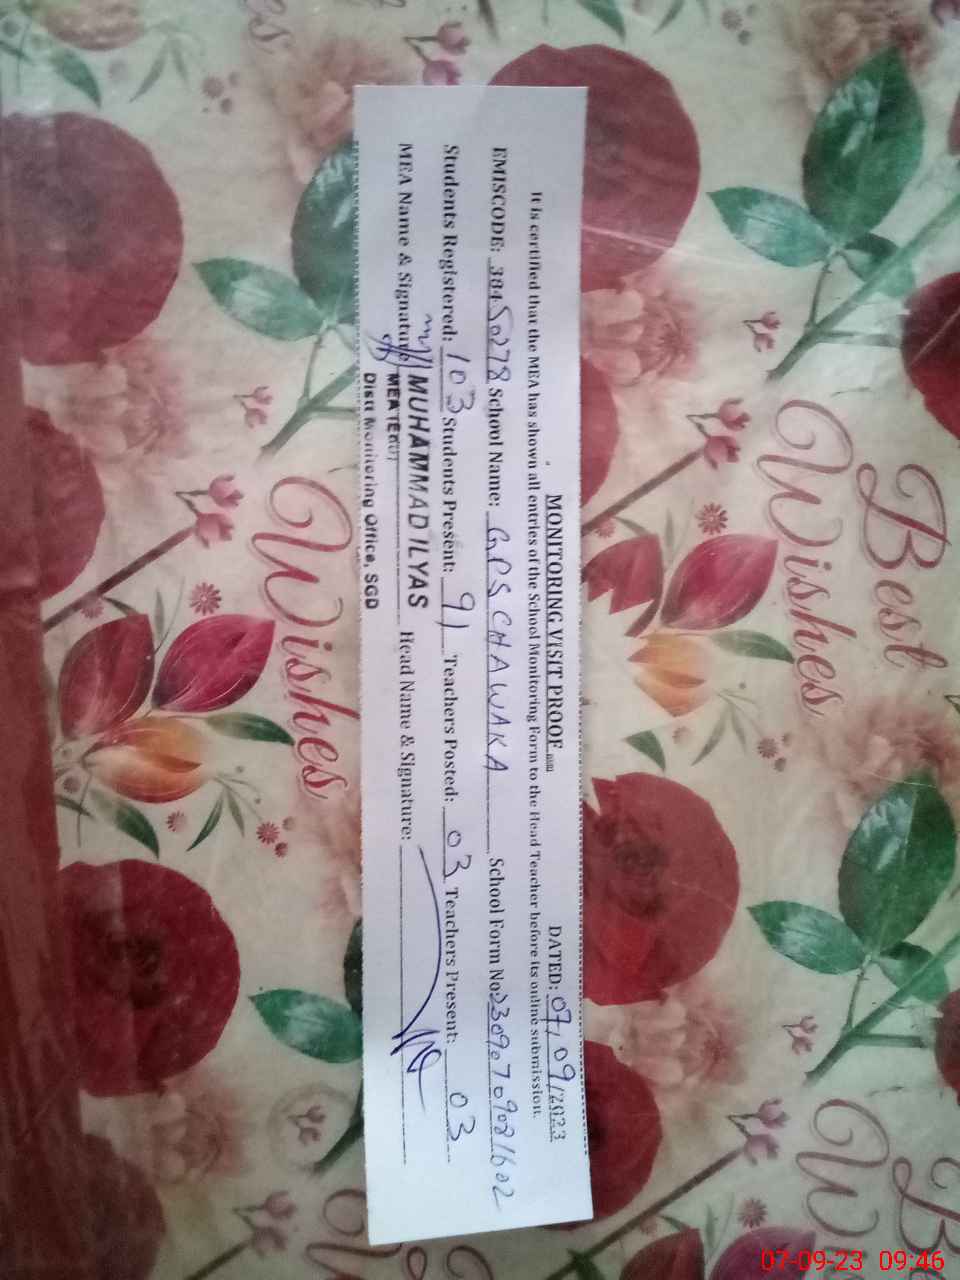 MONITORING VISIT PROOF
DATED: 07/09/2023
It is certified that the MEA has shown all entries of the School Monitoring Form to the Head Teacher before its online submission.
EMISCODE: 38450278 School Name: GPS CHAWAKA School Form No 2309070908 1602
Students Registered: 103 Students Present: 91 Teachers Posted: 03 Teachers Present: 03
MEA Name & Signature: MUHAMMAD ILYAS Head Name & Signature:
Distt Monitoring Office, SGD
Best
Wishes
Wishes
07-09-23 09:46